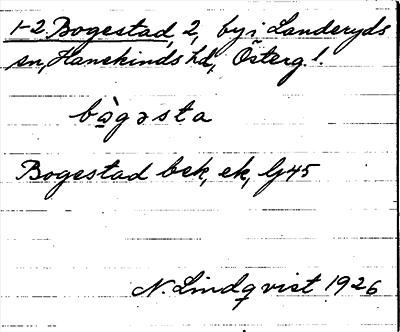 1-2 Bogestad, 2, by i Landeryds
sn, Hanekinds hd, Österg.l.
bògəsta
Bogestad bek, ek, Gj45
N. Lindqvist 1926